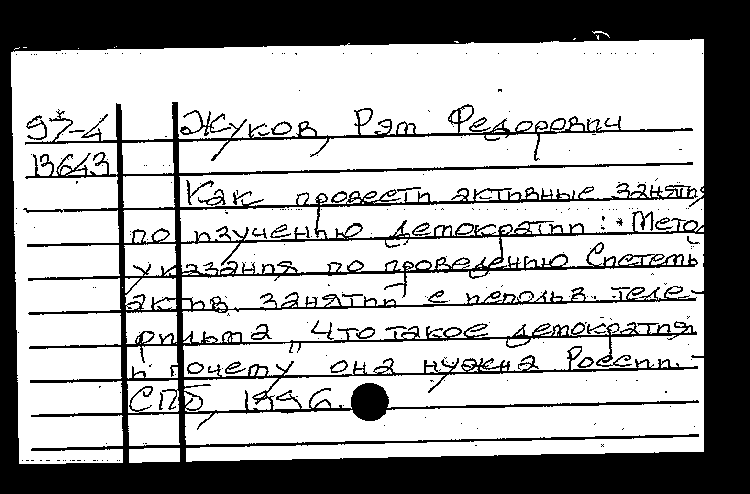 97-4 Жуков, Рэм Федорович
13643
Как провести активные занятия
по изучению демократии: Метод
указания по проведению Системы
актив. занятий с использ. теле-
фильма „Что такое демократия
и почему она нужна России. -
СПб, 1996.